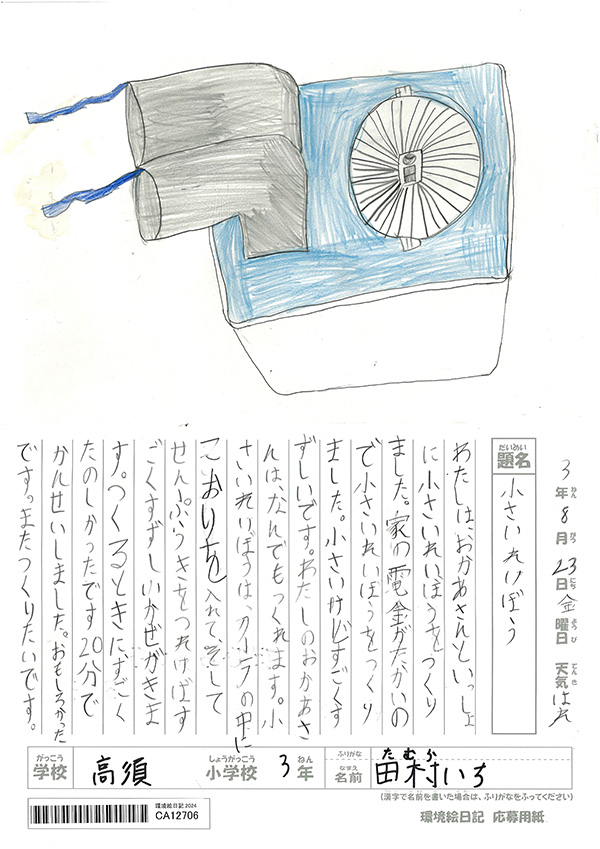 3年8月23日金曜日 天気はれ
ねん がつ にち ようび てんき
だいめい
題名
小さいれいぼう
わたしは、おかあさんといっしょ
に小さいれいぼうをつくり
ました。家の電金がたかいの
で小さいれいぼうをつくり
ました。小さいけどすごくす
ずしいです。わたしのおかあさ
んは、なんでもつくれます。小
さいれいぼうは、クーラーの中に
こおりを入れて、そして
せんぷうきをつければす
ごくすずしいかぜがきま
す。つくるときにすごく
たのしかったです20分で
かんせいしました。おもしろかった
です。またつくりたいです。
がっこう
学校
高須
しょうがっこう
小学校
3
ねん
年
ふりがな
たむら
なまえ
名前
田村いち
(漢字で名前を書いた場合は、ふりがなをふってください)
環境絵日記2024
CA12706
環境絵日記 応募用紙